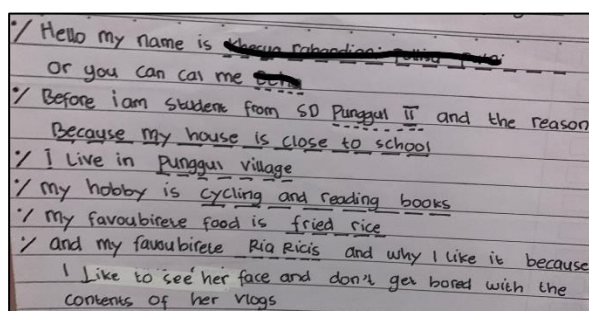 ·/ Hello my name is
or you can cal me
·/ Before i am student from SD Punggul II and the reason
Because my house is close to school
·/ i Live in Punggul village
·/ my hobby is cycling and reading books
·/ my favoubirete food is fried rice
·/ and my favoubirete Ria Ricis and why I like it because
I Like to see her face and don't get bored with the
contents of her vlogs